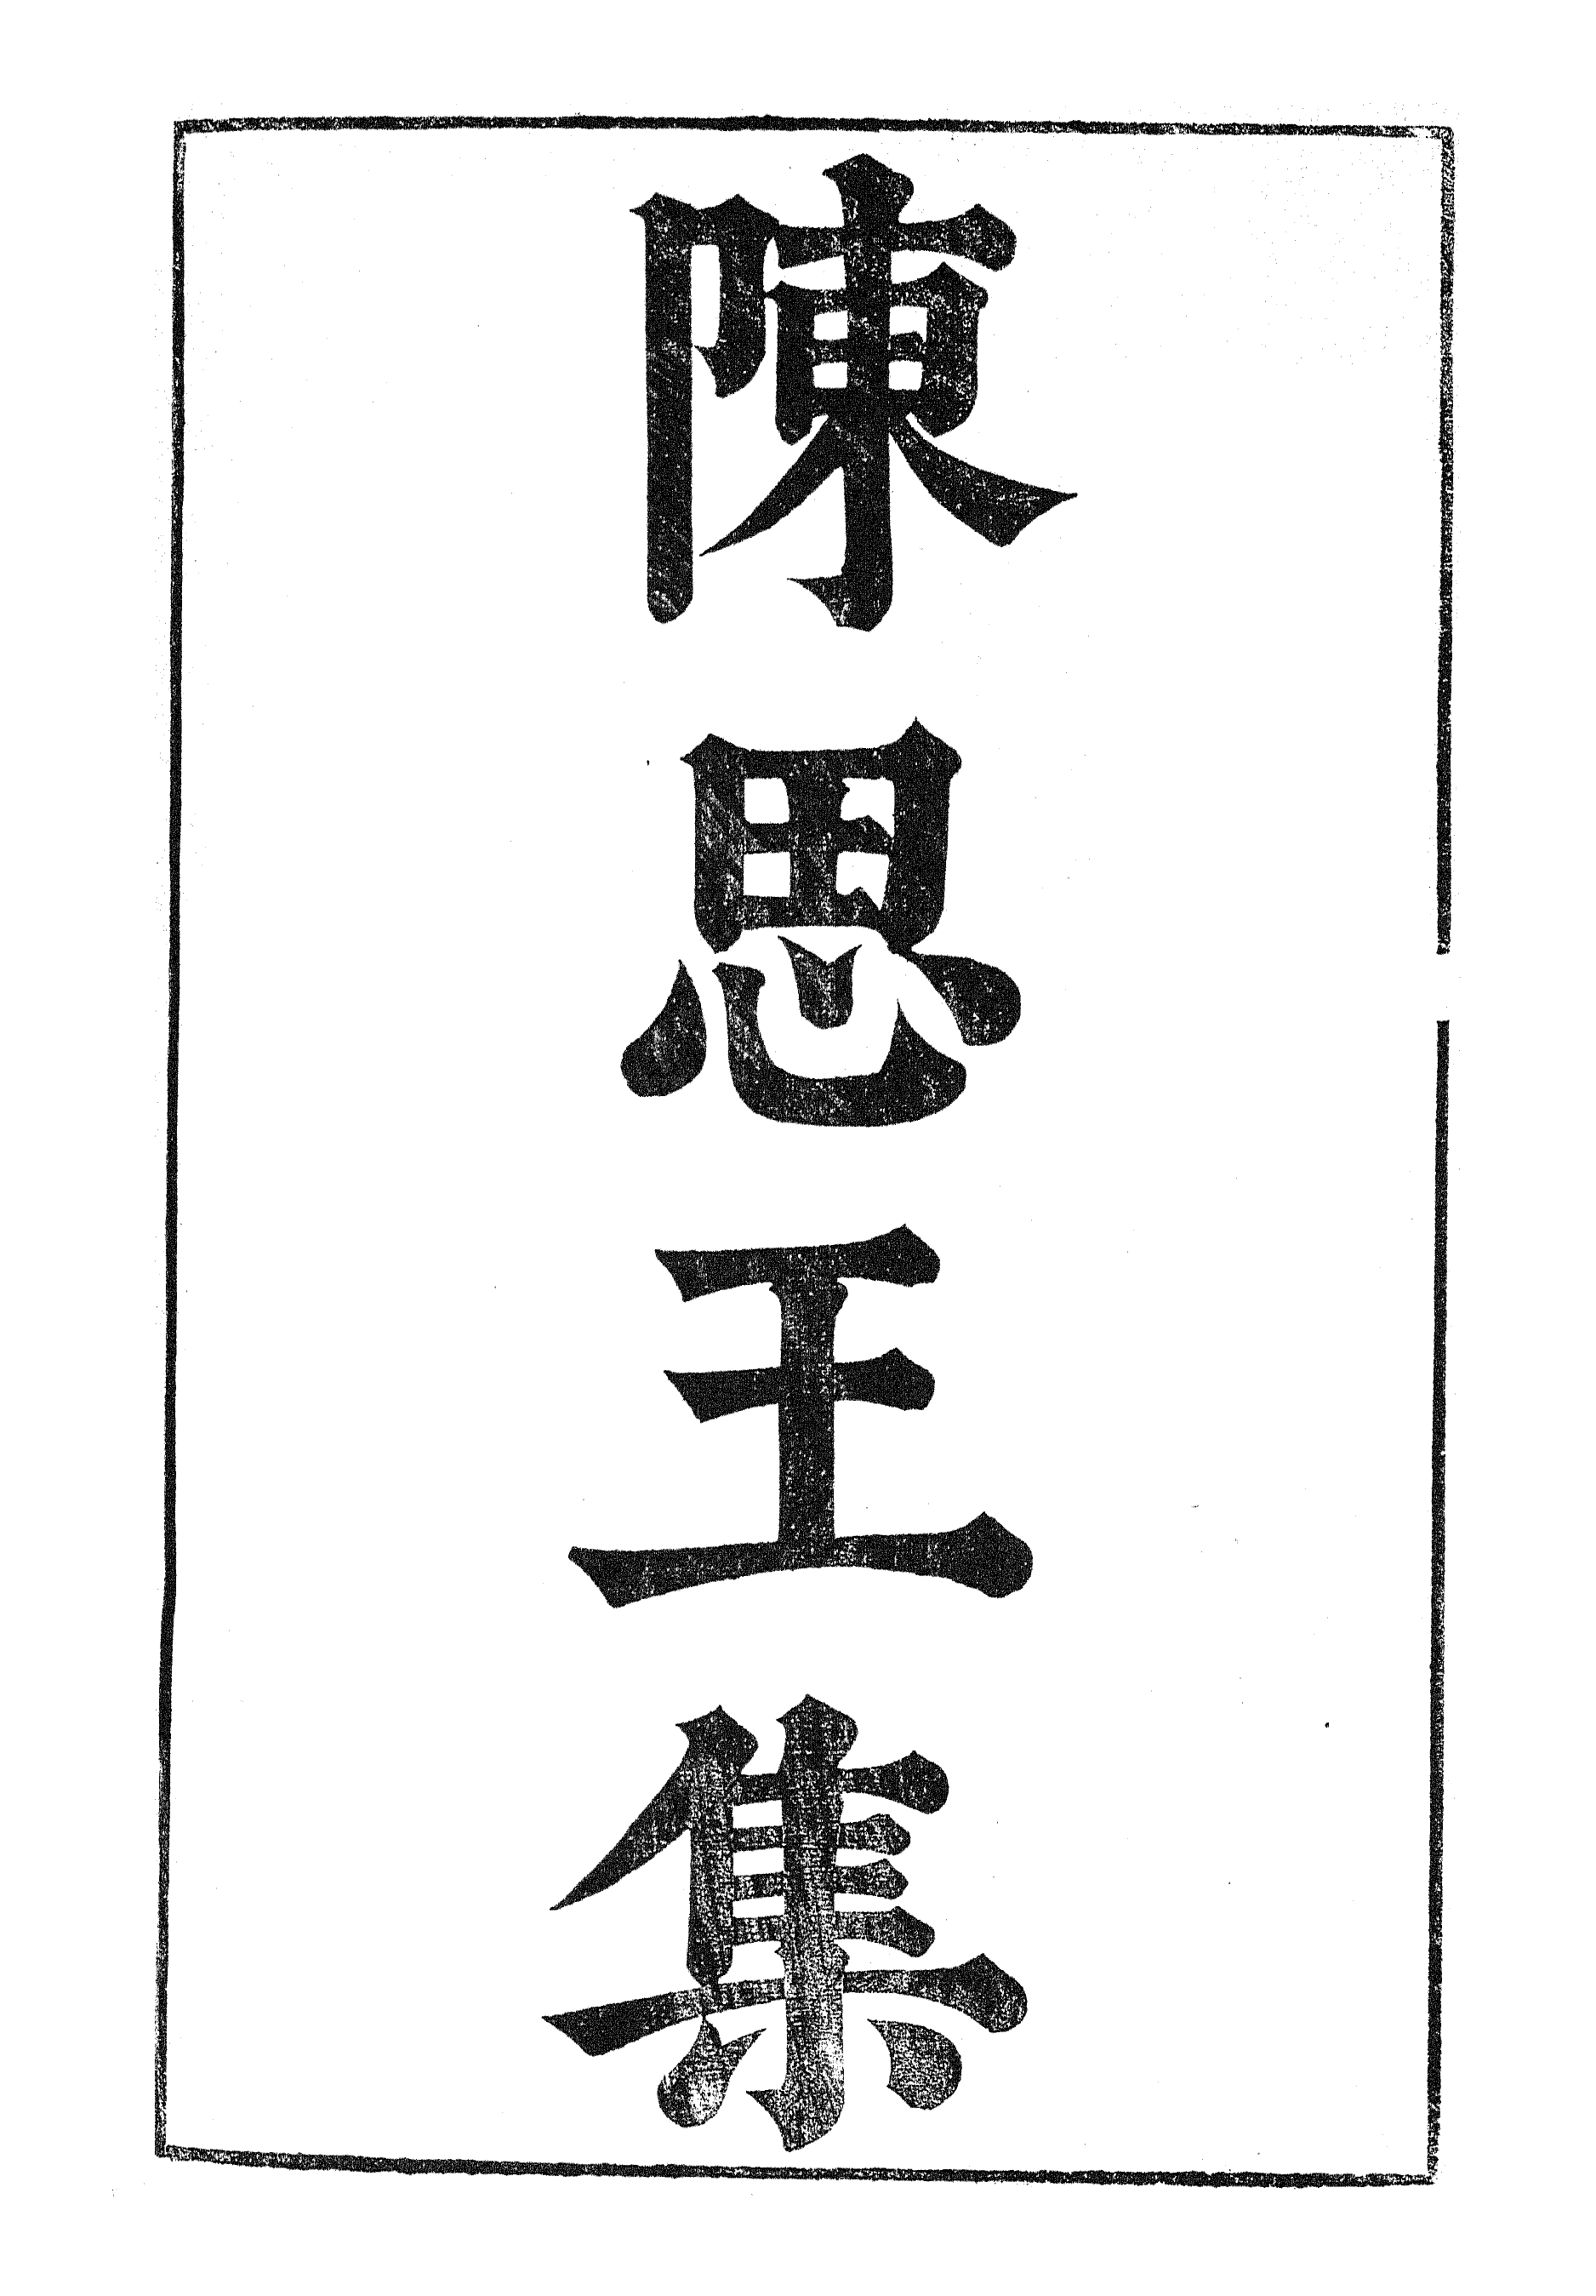 陳思王集